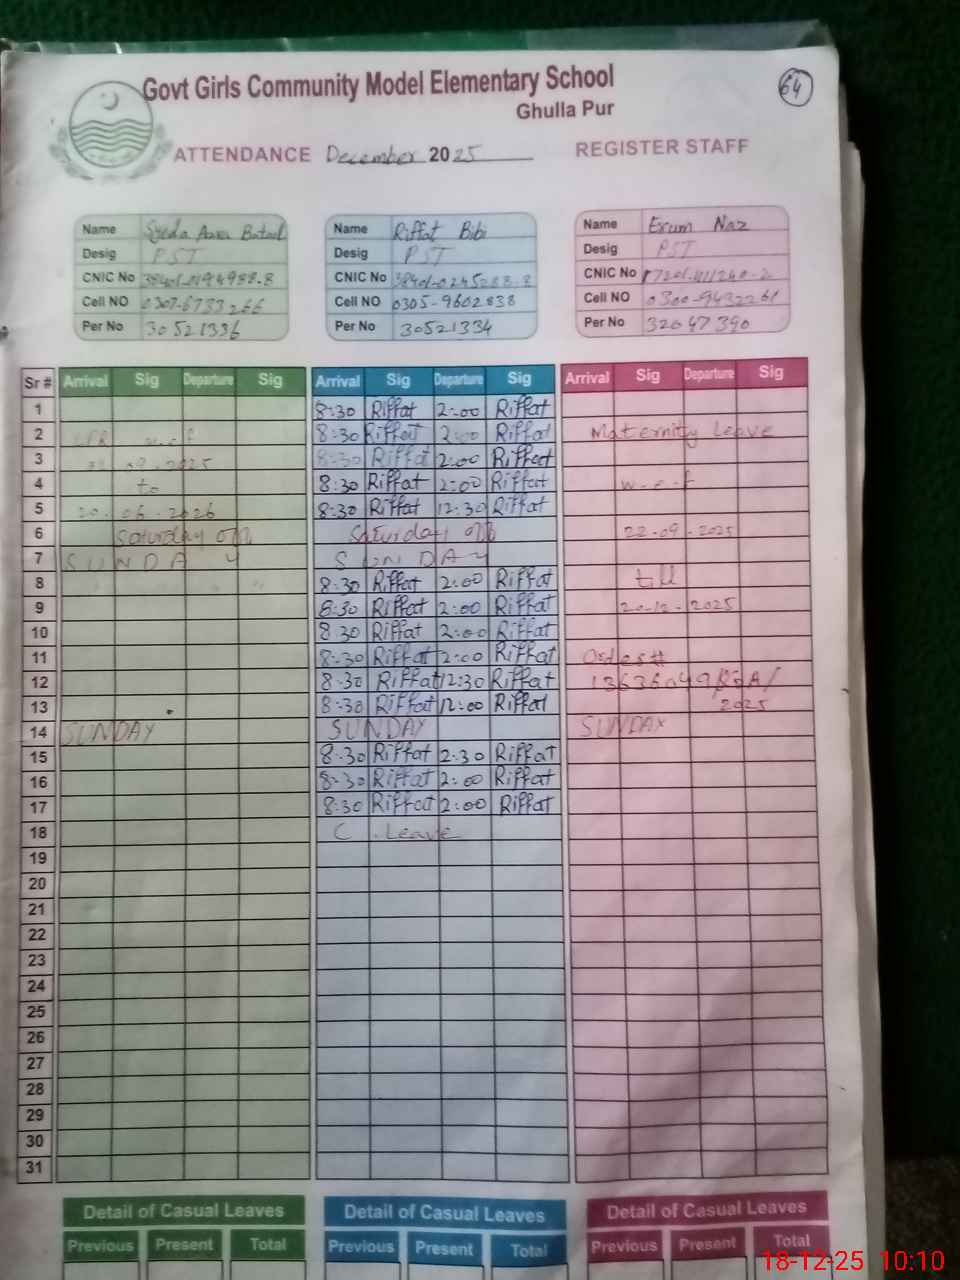 Govt Girls Community Model Elementary School
64
Ghulla Pur
ATTENDANCE December 2025 REGISTER STAFF
Name Syeda Batool Name Riffat Bibi Name Erum Naz
Desig PST Desig PST Desig PST
CNIC No CNIC No CNIC No
Cell NO 0307-6733266 Cell NO 0305-9602838 Cell NO
Per No 30521336 Per No 30521334 Per No 32047390
Sr # Arrival Sig Departure Sig Arrival Sig Departure Sig Arrival Sig Departure Sig
1 8:30 Riffat 2:00 Riffat
2 w.e.f 8:30 Riffat 2:00 Riffat Maternity Leave
3 09.2025 8:30 Riffat 2:00 Riffat
4 to 8:30 Riffat 2:00 Riffat w-e-f
5 20.06.2026 8:30 Riffat 12:30 Riffat
6 Saturday off Saturday off 22-09-2025
7 SUNDAY SUNDAY
8 8:30 Riffat 2:00 Riffat till
9 8:30 Riffat 2:00 Riffat 20-12-2025
10 8:30 Riffat 2:00 Riffat
11 8:30 Riffat 2:00 Riffat
12 8:30 Riffat 12:30 Riffat
13 8:30 Riffat 12:00 Riffat 2025
14 SUNDAY SUNDAY SUNDAY
15 8:30 Riffat 2:30 Riffat
16 8:30 Riffat 2:00 Riffat
17 8:30 Riffat 2:00 Riffat
18 C. Leave
19
20
21
22
23
24
25
26
27
28
29
30
31
Detail of Casual Leaves Detail of Casual Leaves Detail of Casual Leaves
Previous Present Total Previous Present Total Previous Present Total
18-12-25 10:10